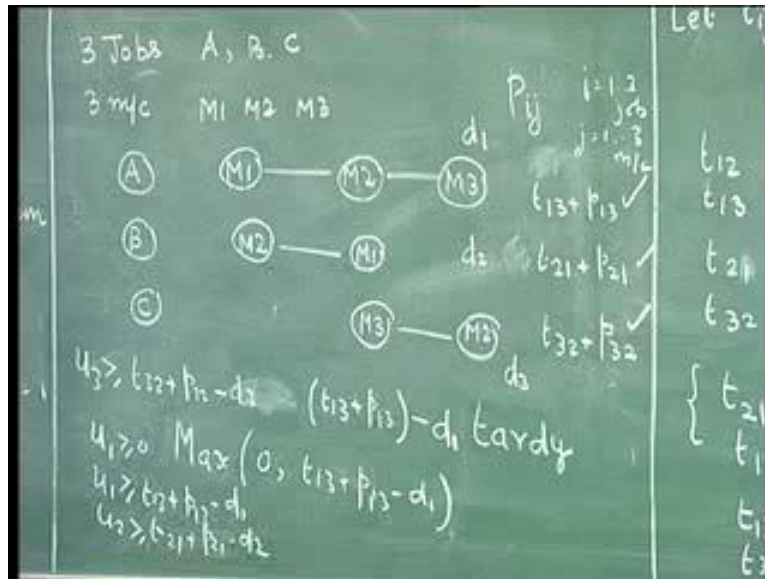 3 Jobs A, B. C
3 m/c M1 M2 M3
Pij i=1, 3
job
j=1, 3
m/c
d1
A M1 M2 M3
t13+p13 ✓
B M2 M1 d2 t21+p21 ✓
C M3 M2 t32+p32 ✓
d3
u3≥t32+p32-d3 (t13+p13)-d1 tardy
u1≥0 Max(0, t13+p13-d1)
u1≥t13+p13-d1
u2≥t21+p21-d2
Let
t12
t13
t21
t32
{ t21